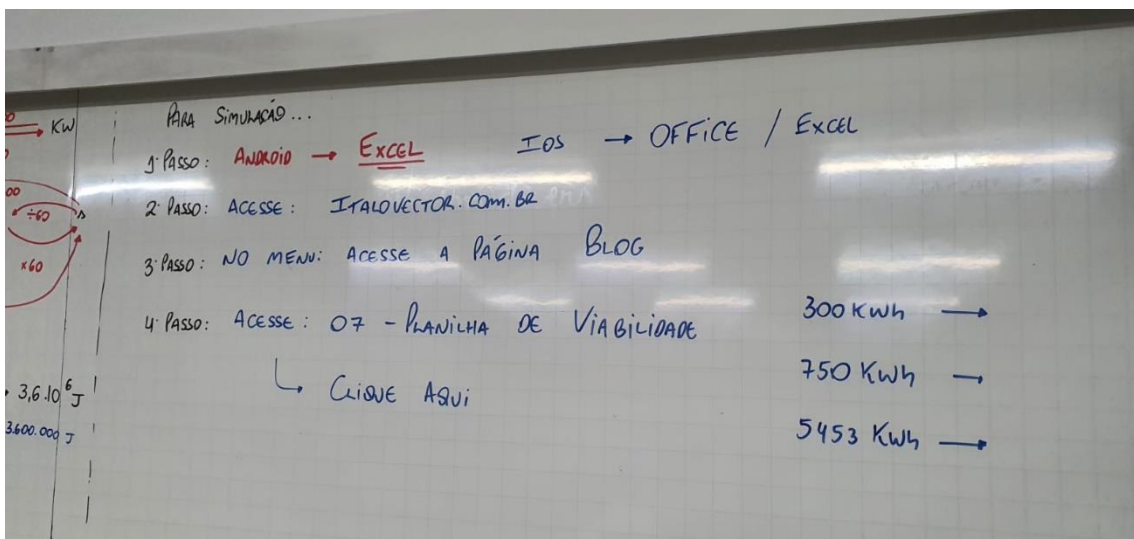 KW
÷60
x60
3,6.10⁶ J
3.600.000 J
PARA SIMULAÇÃO...
1º PASSO: ANDROID → EXCEL IOS → OFFICE / EXCEL
2º PASSO: ACESSE: ITALOVECTOR.COM.BR
3º PASSO: NO MENU: ACESSE A PÁGINA BLOG
4º PASSO: ACESSE: 07 - PLANILHA DE VIABILIDADE
↳ CLIQUE AQUI
300 KWh →
750 KWh →
5453 KWh →